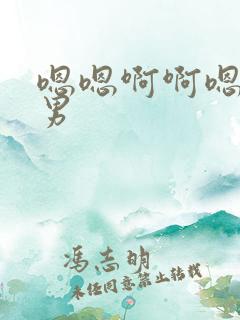 嗯嗯啊啊嗯
男
冯志明
未经同意禁止转载